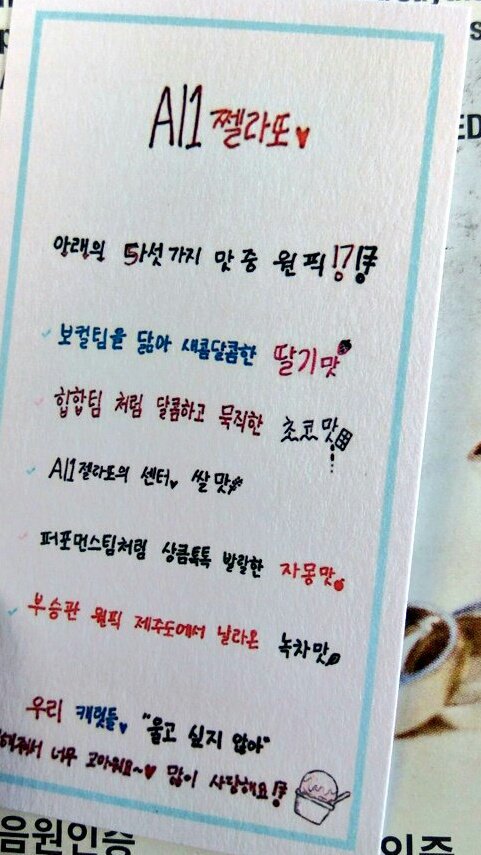 Al1 쩰라또♥
아래의 5가섯가지 맛 중 원픽!?!
보컬팀을 닮아 새콤달콤한 딸기맛
힙합팀 처럼 달콤하고 묵직한 초코맛
Al1 젤라또의 센터♥ 쌀맛
퍼포먼스팀처럼 상큼톡톡 발랄한 자몽맛
부승관 원픽 제주도에서 날라온 녹차맛
우리 캐럿들♥ "울고 싶지 않아"
해줘서 너무 고마워요~♥ 많이 사랑해요!
음원인증
인증
ED